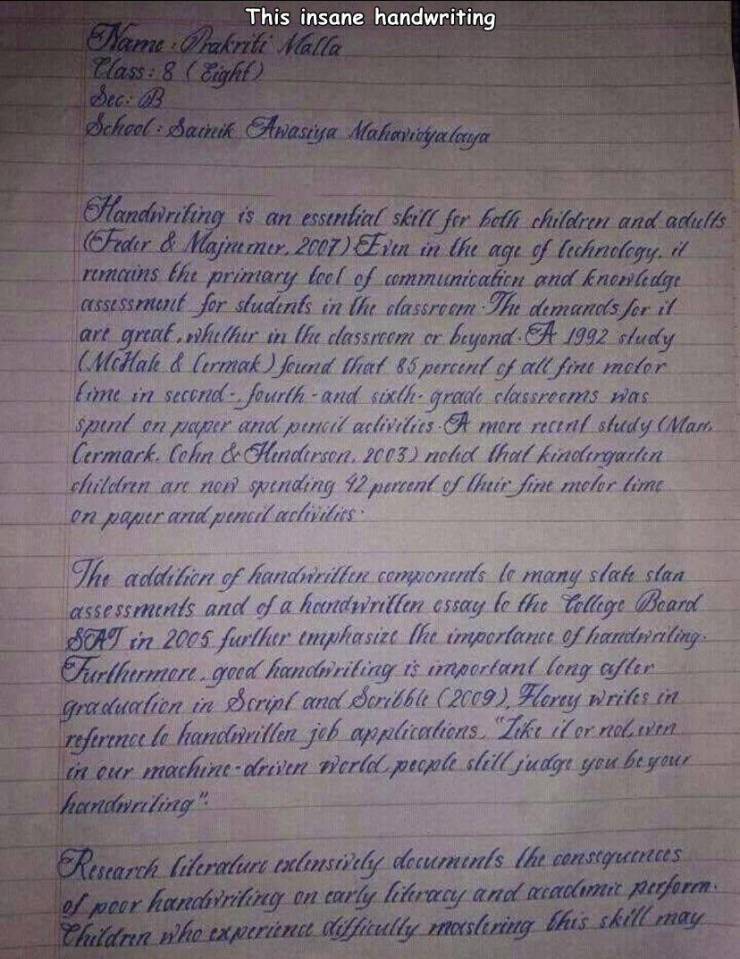 This insane handwriting
Name : Prakriti Malla
Class : 8 (Eight)
Sec : B
School : Sainik Awasiya Mahavidyalaya
Handwriting is an essential skill for both children and adults
(Feder & Majnemer, 2007) Even in the age of technology, it
remains the primary tool of communication and knowledge
assessment for students in the classroom. The demands for it
are great, whether in the classroom or beyond. A 1992 study
(McHale & Cermak) found that 85 percent of all fine motor
time in second-, fourth-and sixth-grade classrooms was
spent on paper and pencil activities. A more recent study (Marr,
Cermark, Cohn & Henderson, 2003) noted that kindergarten
children are now spending 42 percent of their fine motor time
on paper and pencil activities.
The addition of handwritten components to many state stan
assessments and of a handwritten essay to the College Board
SAT in 2005 further emphasize the importance of handwriting.
Furthermore, good handwriting is important long after
graduation in Script and Scribble (2009), Florey writes in
reference to handwritten job applications, "Like it or not, even
in our machine-driven world, people still judge you be your
handwriting".
Research literature extensively documents the consequences
of poor handwriting on early literacy and academic perform.
Children who experience difficulty mastering this skill may